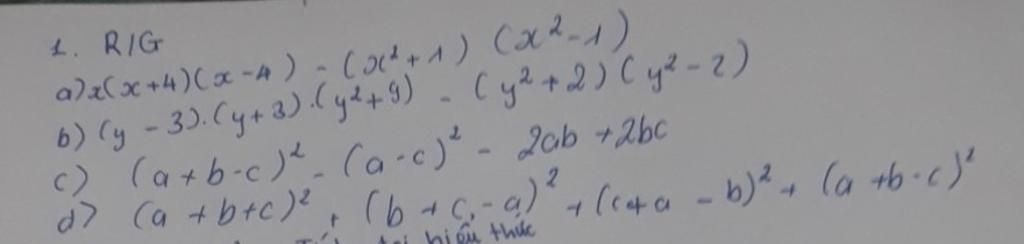 1. R/G
a) x(x+4)(x-4) - (x²+1) (x²-1)
b) (y - 3).(y+3).(y²+9) - (y²+2)(y²-2)
c) (a+b-c)² - (a-c)² - 2ab +2bc
d) (a+b+c)² + (b+c-a)² + (c+a-b)² + (a+b-c)²
hiệu thức